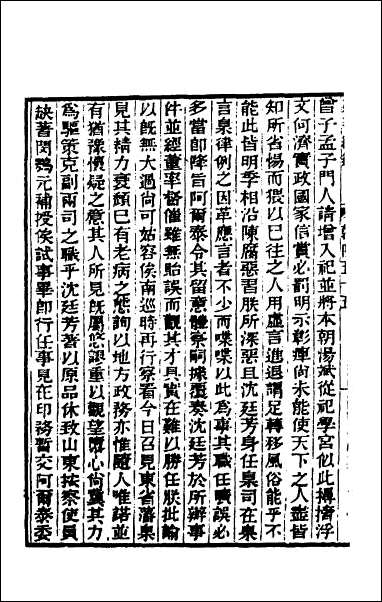 曾子孟子門人請增入祀並將本朝湯斌從祀學宮似此摭拾浮
文何濟實政國家信賞必罰明示彰癉尚未能使天下之人盡皆
知所省惕而猥以已往之人用虛言進退謂足轉移風俗能乎不
能此皆明季相沿陳腐惡習朕所深惡且沈廷芳身任臬司在臬
言臬律例之因革應言者不少而喋喋以此為事其職任曠誤必
多當卽降旨阿爾泰令其留意體察嗣據覆奏沈廷芳於所辦事
件並經董率督催雖無貽誤而觀其才具實在難以勝任朕批諭
以旣無大過尚可姑容俟南巡時再行察看今日召見東省藩臬
見其精力衰頽已有老病之態詢以地方政務亦惟隨人唯諾並
有猶豫懷疑之意其人所見旣屬悠謬重以觀望墮心尚冀其力
為驅策克副兩司之職乎沈廷芳著以原品休致山東按察使員
缺著閔鶚元補授俟試事畢卽行任事見在印務暫交阿爾泰委